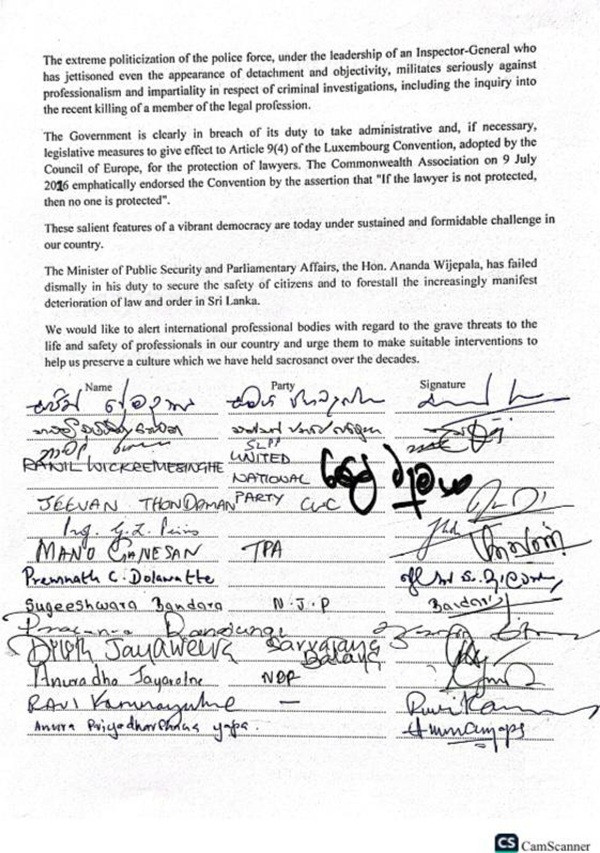 The extreme politicization of the police force, under the leadership of an Inspector-General who
has jettisoned even the appearance of detachment and objectivity, militates seriously against
professionalism and impartiality in respect of criminal investigations, including the inquiry into
the recent killing of a member of the legal profession.
The Government is clearly in breach of its duty to take administrative and, if necessary,
legislative measures to give effect to Article 9(4) of the Luxembourg Convention, adopted by the
Council of Europe, for the protection of lawyers. The Commonwealth Association on 9 July
2016 emphatically endorsed the Convention by the assertion that "If the lawyer is not protected,
then no one is protected".
These salient features of a vibrant democracy are today under sustained and formidable challenge in
our country.
The Minister of Public Security and Parliamentary Affairs, the Hon. Ananda Wijepala, has failed
dismally in his duty to secure the safety of citizens and to forestall the increasingly manifest
deterioration of law and order in Sri Lanka.
We would like to alert international professional bodies with regard to the grave threats to the
life and safety of professionals in our country and urge them to make suitable interventions to
help us preserve a culture which we have held sacrosanct over the decades.
Name Party Signature
SLPP
RANIL WICKREMESINGHE UNITED
NATIONAL
JEEVAN THONDAMAN PARTY CWC
G. L. Peiris
MANO GANESAN TPA
Premnath C. Dolawatte
Sugeeshwara Bandara N.J.P
Dilith Jayaweera Sarvajana
Balaya
Anuradha Jayaratne NDF
RAVI Karunanayake —
Anura Priyadharshana yapa.
CS CamScanner